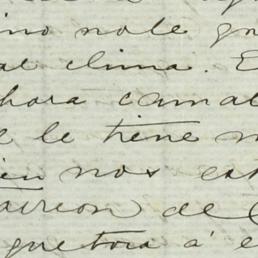 ino note gu
al clima. E
hora camal
e le tiene m
ien nos est
aireon de C
que tora á e